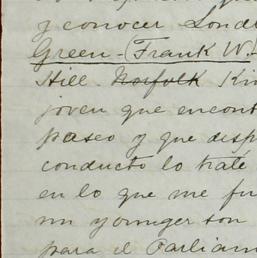 y conocer Lond
Green - (Frank W.
Hill Norfolk Kin
joven que encont
paseo y que desp
conducto lo trate
en lo que me fu
un younger son
para el Parliam